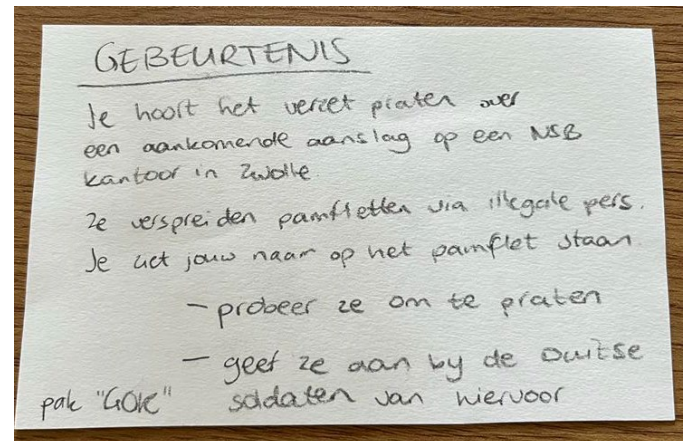 GEBEURTENIS
Je hoort het verzet praten over
een aankomende aanslag op een NSB
kantoor in Zwolle.
Ze verspreiden pamfletten via illegale pers.
Je ziet jouw naam op het pamflet staan
- probeer ze om te praten
- geef ze aan by de Duitse
pak "GOK" soldaten van hiervoor